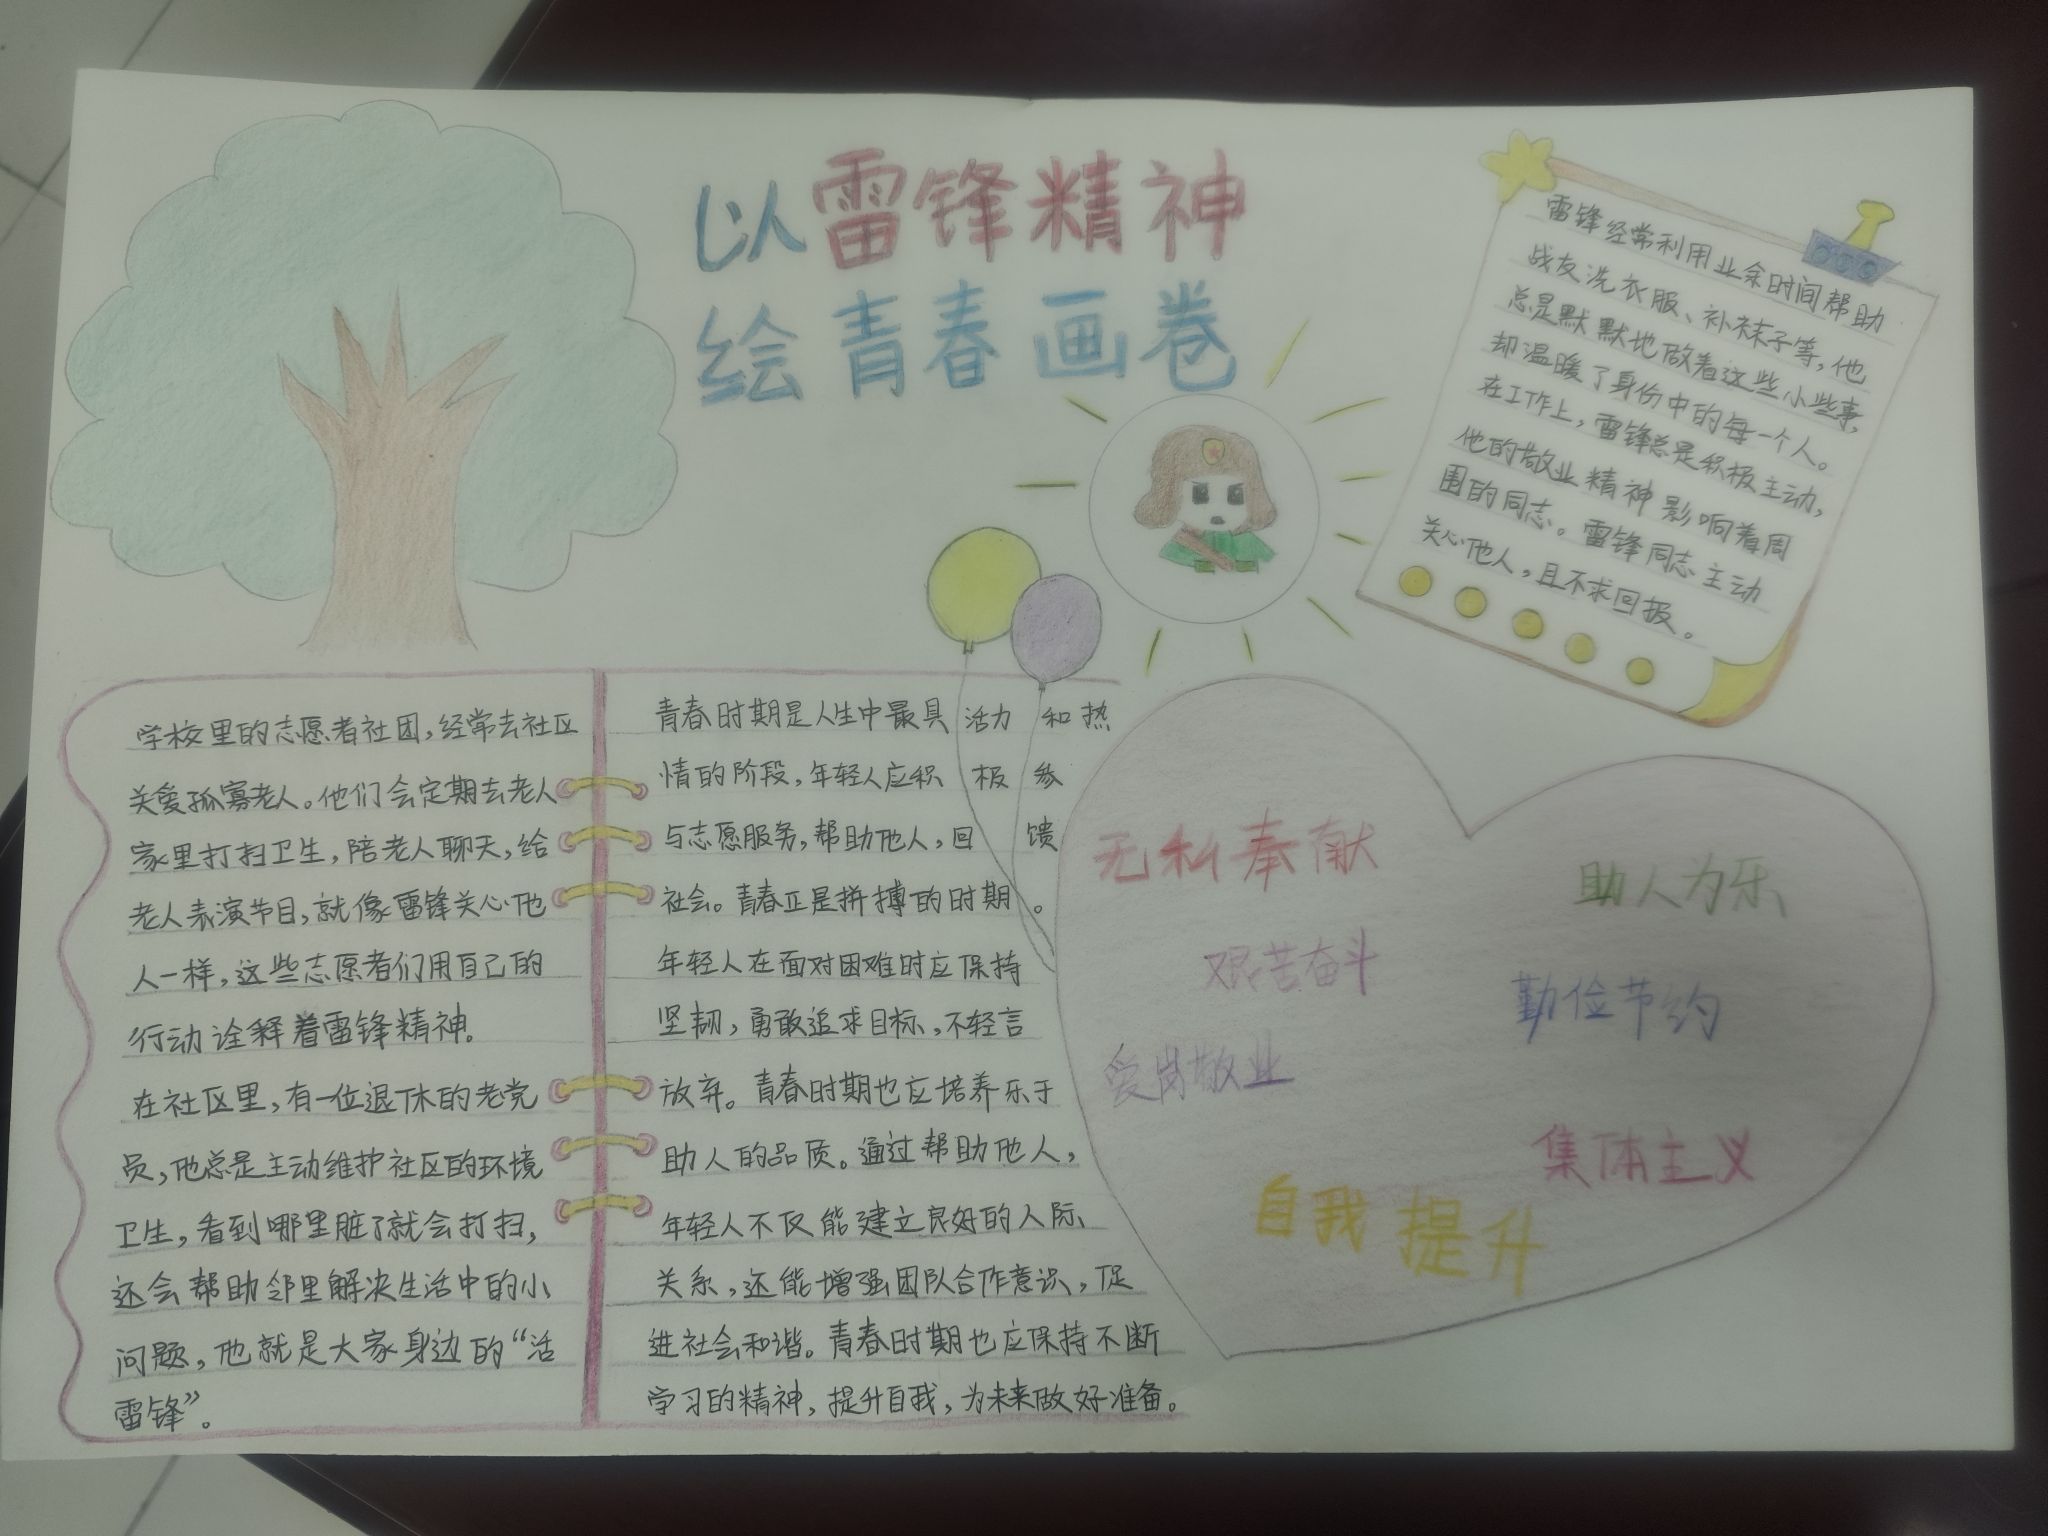 以雷锋精神
绘青春画卷
雷锋经常利用业余时间帮助
战友洗衣服、补袜子等,他
总是默默地做着这些小些事,
却温暖了身份中的每一个人。
在工作上,雷锋总是积极主动,
他的敬业精神影响着周
围的同志。雷锋同志主动
关心他人,且不求回报。
学校里的志愿者社团,经常去社区
关爱孤寡老人。他们会定期去老人
家里打扫卫生,陪老人聊天,给
老人表演节目,就像雷锋关心他
人一样,这些志愿者们用自己的
行动诠释着雷锋精神。
在社区里,有一位退休的老党
员,他总是主动维护社区的环境
卫生,看到哪里脏了就会打扫,
还会帮助邻里解决生活中的小
问题,他就是大家身边的“活
雷锋”。
青春时期是人生中最具活力和热
情的阶段,年轻人应积极参
与志愿服务,帮助他人,回馈
社会。青春正是拼搏的时期。
年轻人在面对困难时应保持
坚韧,勇敢追求目标,不轻言
放弃。青春时期也应培养乐于
助人的品质。通过帮助他人,
年轻人不仅能建立良好的人际
关系,还能增强团队合作意识,促
进社会和谐。青春时期也应保持不断
学习的精神,提升自我,为未来做好准备。
无私奉献
助人为乐
艰苦奋斗
勤俭节约
爱岗敬业
集体主义
自我提升